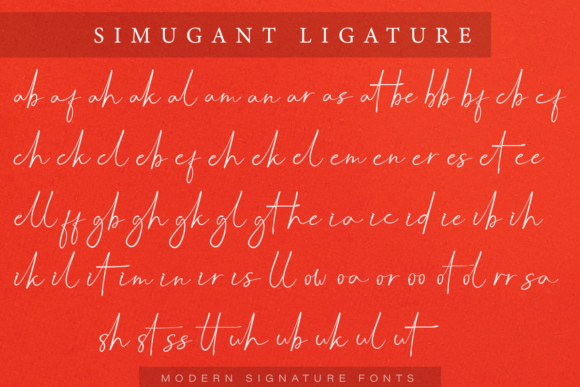 SIMUGANT LIGATURE
ab af ah ak al am an ar as at be bb bf cb cf
ch ck cl eb ef eh ek el em en er es et ee
ell ff gb gh gk gl gt he ia ic id ie ib ih
ik il it im in ir is ll ow oa or oo ot ol rr sa
sh st ss tt uh ub uk ul ut
MODERN SIGNATURE FONTS